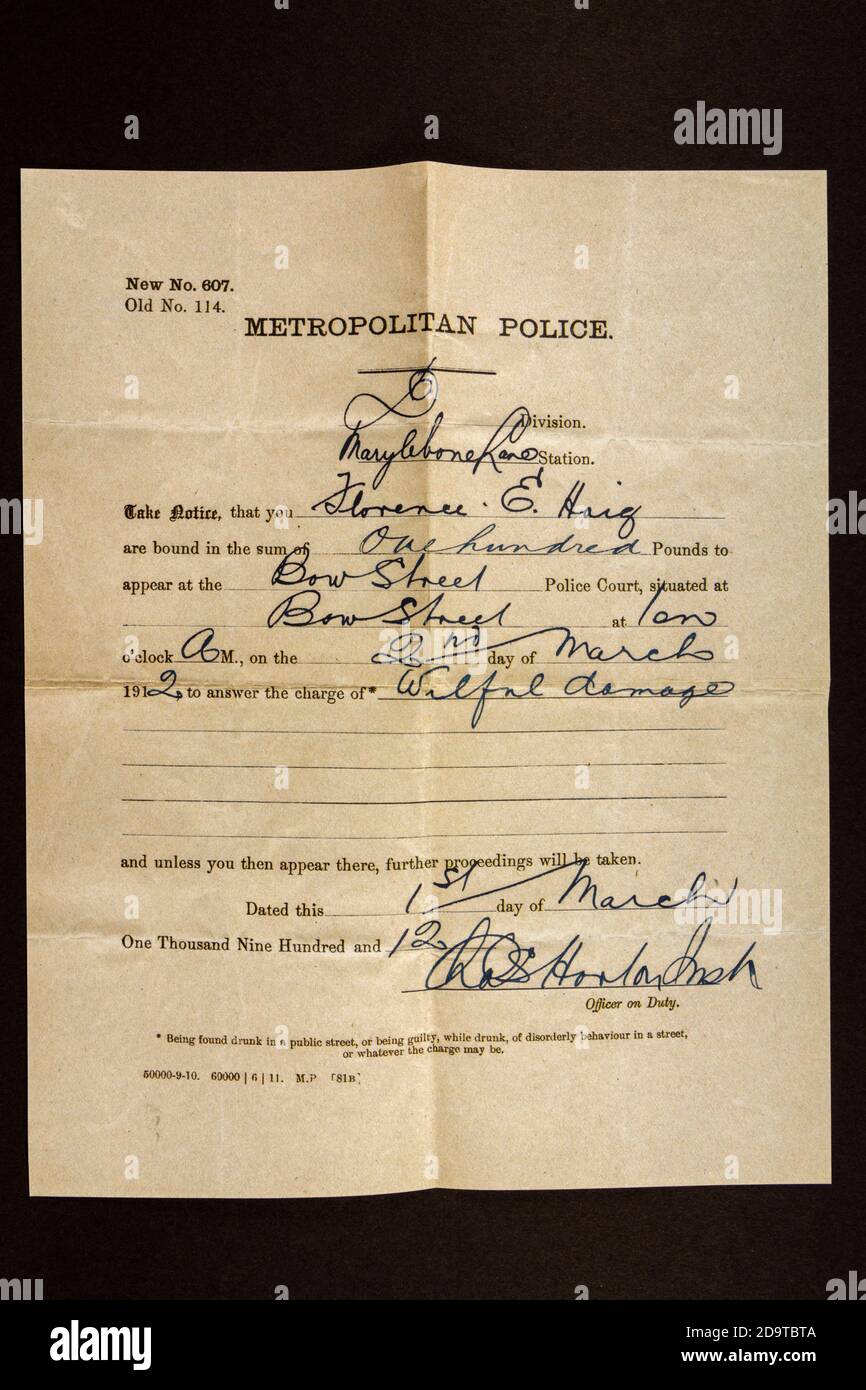 New No. 607.
Old No. 114.
METROPOLITAN POLICE.
D Division.
Marylebone Lane Station.
Take Notice, that you Florence. E. Haig
are bound in the sum of One hundred Pounds to
appear at the Bow Street Police Court, situated at
Bow Street at Ten
o'clock A M., on the 2nd day of March
1912, to answer the charge of* Wilful damage
and unless you then appear there, further proceedings will be taken.
Dated this 1st day of March
One Thousand Nine Hundred and 12
Horton Insp
Officer on Duty.
* Being found drunk in a public street, or being guilty, while drunk, of disorderly behaviour in a street,
or whatever the charge may be.
50000-9-10. 60000 | 6 | 11. M.P [81B]
alamy
a
alamy
Image ID: 2D9TBTA
www.alamy.com